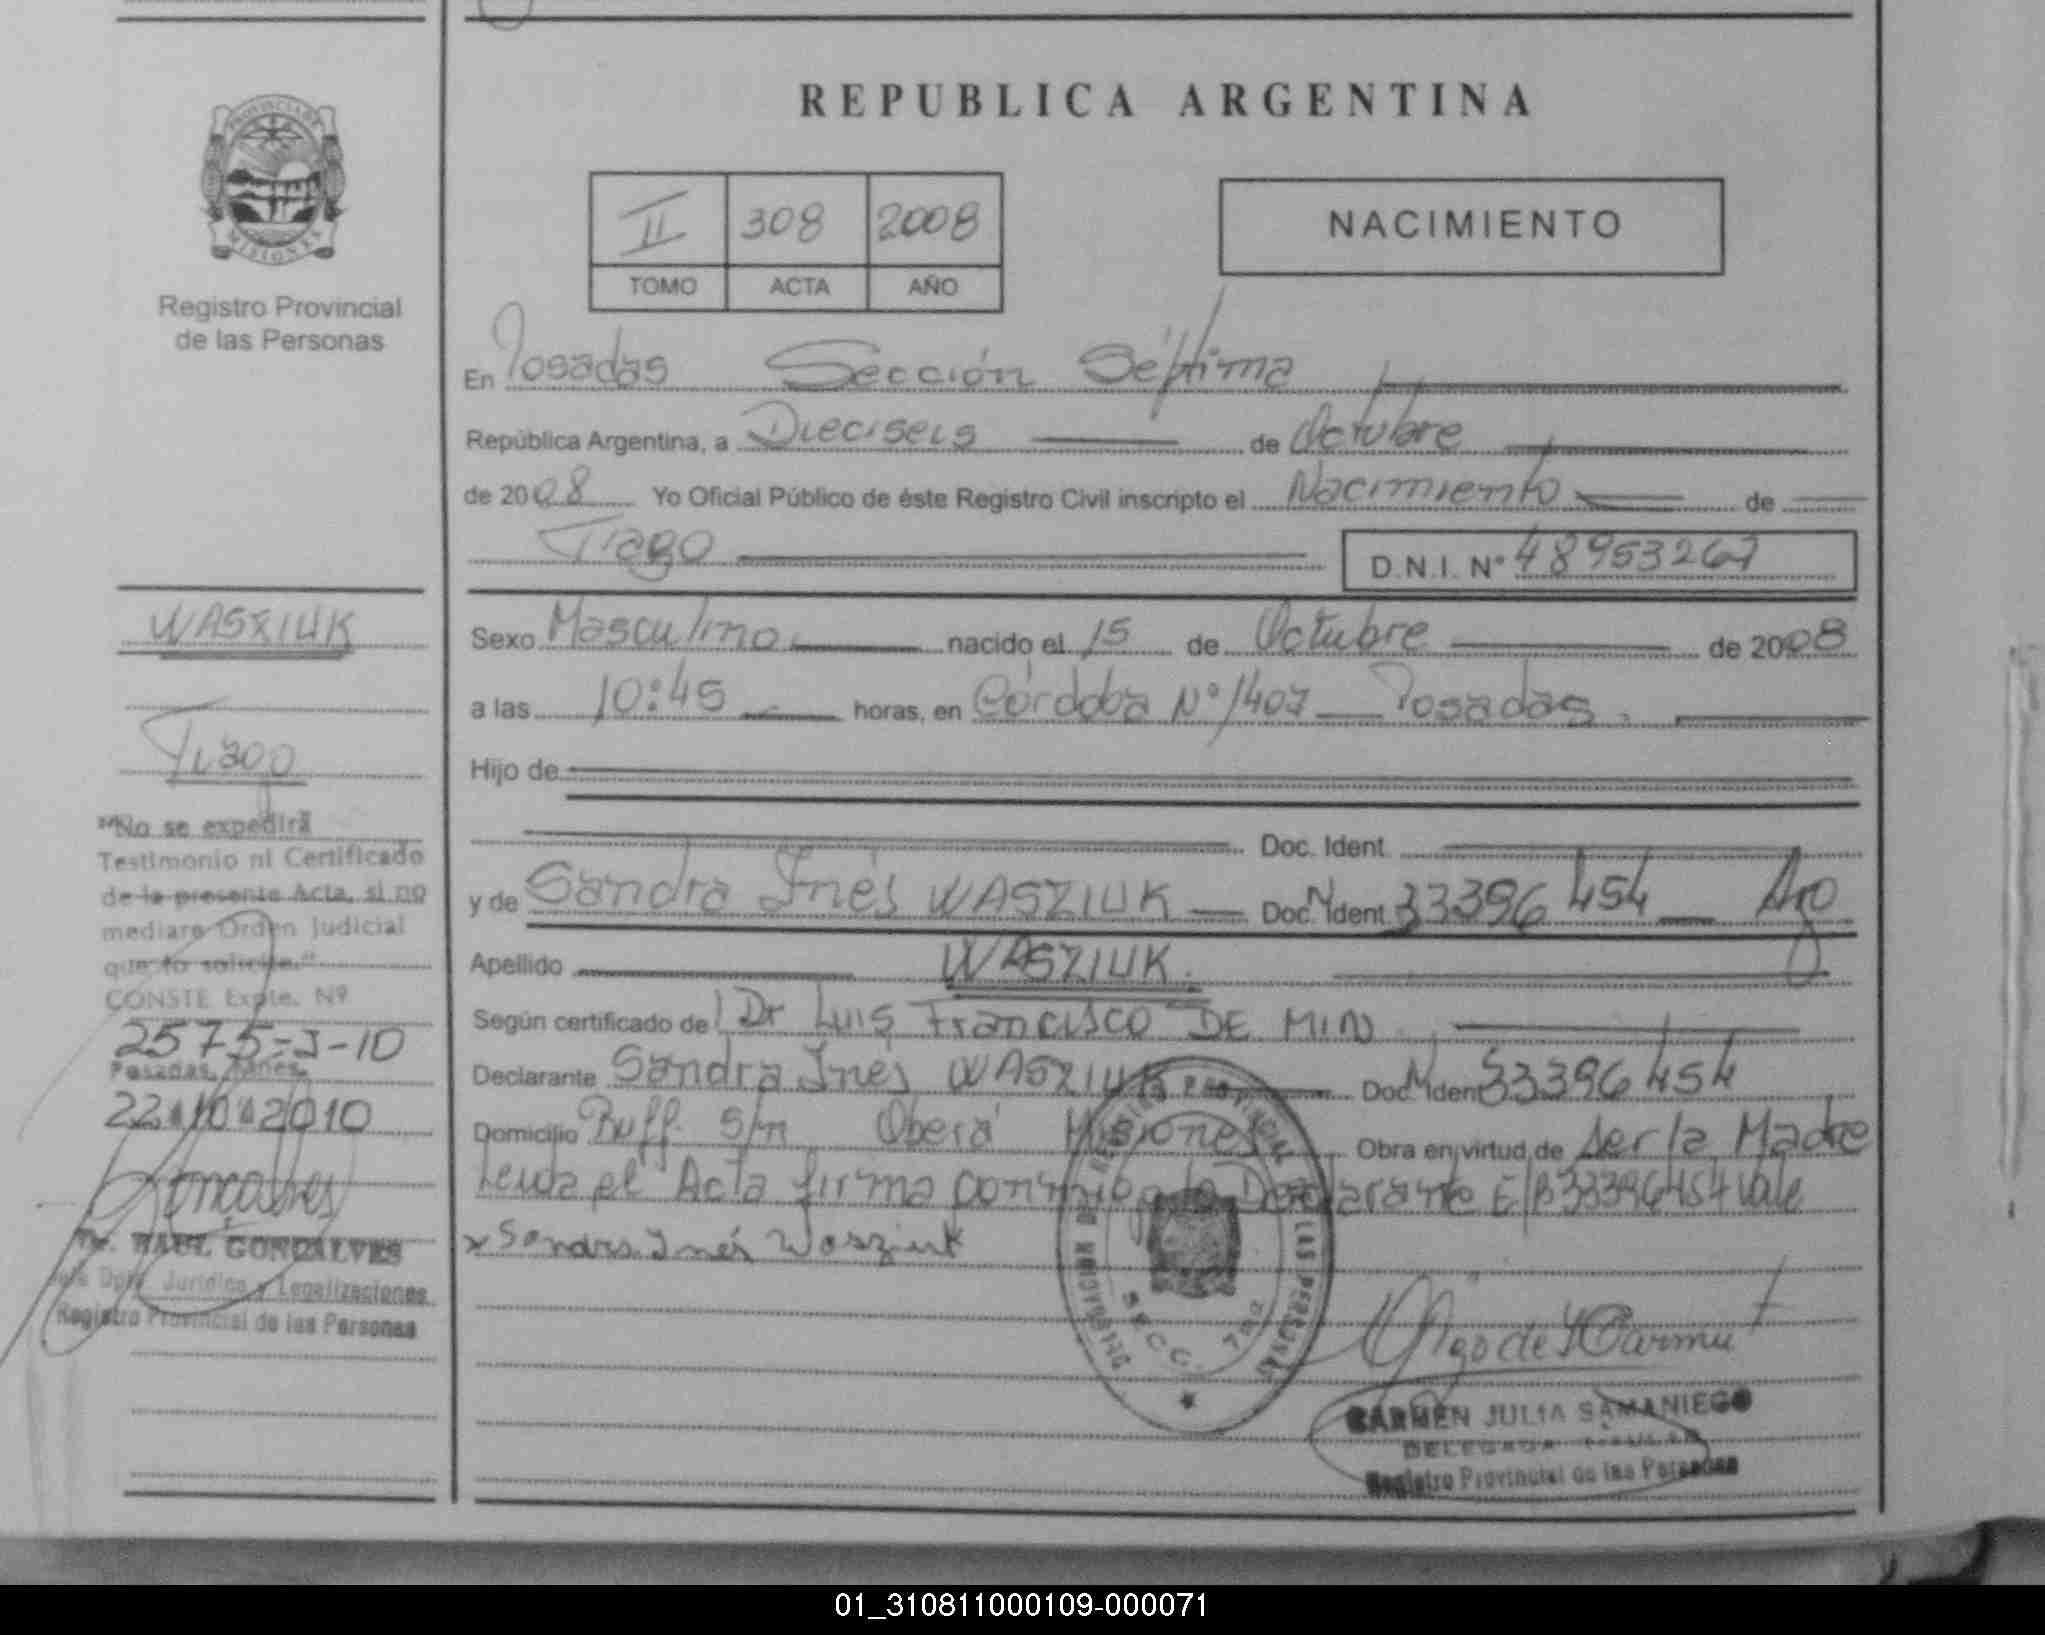 REPUBLICA ARGENTINA
PROVINCIA DE
MISIONES
Registro Provincial
de las Personas
II 308 2008
TOMO ACTA AÑO
NACIMIENTO
En Posadas Sección Séptima
República Argentina, a Dieciseis de Octubre
de 2008 Yo Oficial Público de éste Registro Civil inscripto el Nacimiento de
Tiago D.N.I. Nº 48953267
WASZIUK
Tiago
"No se expedirá
Testimonio ni Certificado
de la presente Acta, si no
mediare Orden Judicial
que lo solicite."
CONSTE Expte. Nº
2575-J-10
Posadas, Mnes.
22 10 2010
Goncalves
RAUL GONZALVES
Dpto. Jurídico y Legalizaciones
Registro Provincial de las Personas
Sexo Masculino nacido el 15 de Octubre de 2008
a las 10:45 horas, en Córdoba Nº 1407 Posadas.
Hijo de
Doc. Ident.
y de Sandra Inés WASZIUK Doc. Ident. 33396454
Apellido WASZIUK.
Según certificado del Dr Luis Francisco DE MIN
Declarante Sandra Inés WASZIUK Doc. Ident. 33396454
Domicilio Buff. S/n Oberá Misiones Obra en virtud de ser la Madre
Leída el Acta firma conmigo la Declarante E/B 33396454 Vale
x Sandra Inés Wasziuk
SECC. 7ma
CARMEN JULIA SAMANIEGO
DELEGADA TITULAR
Registro Provincial de las Personas
01_310811000109-000071